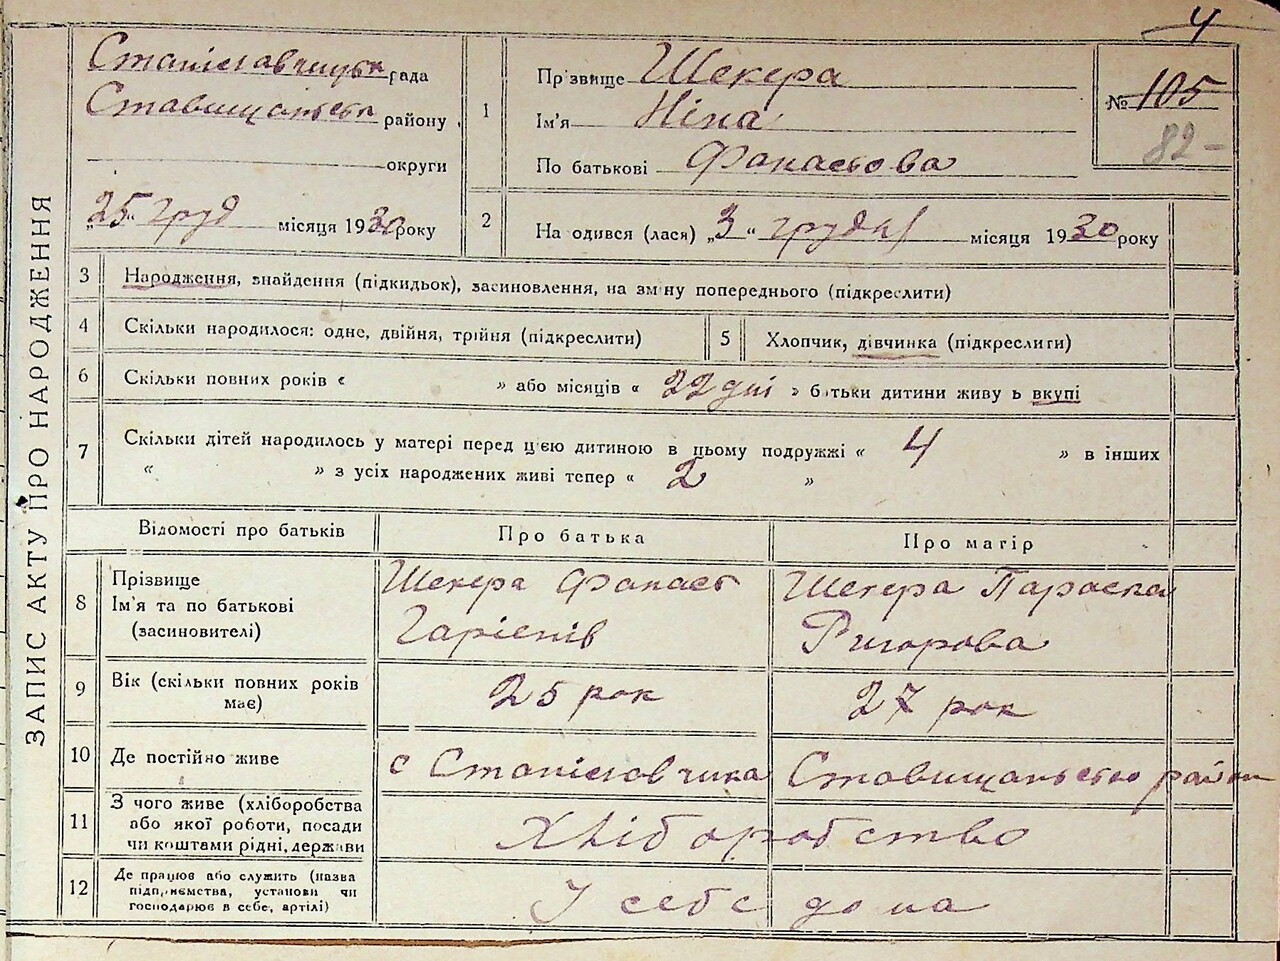 4
ЗАПИС АКТУ ПРО НАРОДЖЕННЯ
Станіславчицька рада
Ставищанськ району
округи
„25“ груд місяця 1930 року
1 Прізвище Шекера
Ім'я Ніна
По батькові Фанасова
№ 105
82 –
2 На одився (лася) „3“ грудня місяця 1930 року
3 Народження, знайдення (підкидьок), засиновлення, на зміну попереднього (підкреслити)
4 Скільки народилося: одне, двійня, трійня (підкреслити)
5 Хлопчик, дівчинка (підкреслити)
6 Скільки повних років « » або місяців « 22 дні » батьки дитини живуть вкупі
7 Скільки дітей народилось у матері перед цією дитиною в цьому подружжі « 4 » в інших
« » з усіх народжених живі тепер « 2 »
Відомості про батьків Про батька Про матір
8 Прізвище Шекера Фанас Шекера Параска
Ім'я та по батькові
(засиновителі) Ригорова
9 Вік (скільки повних років має) 25 рок 27 рок
10 Де постійно живе с Станіславчика Ставищанського район
11 З чого живе (хліборобства або якої роботи, посади чи коштами рідні, держави Хліборобство
12 Де працює або служить (назва підприємства, установи чи господарює в себе, артілі) У себе дома